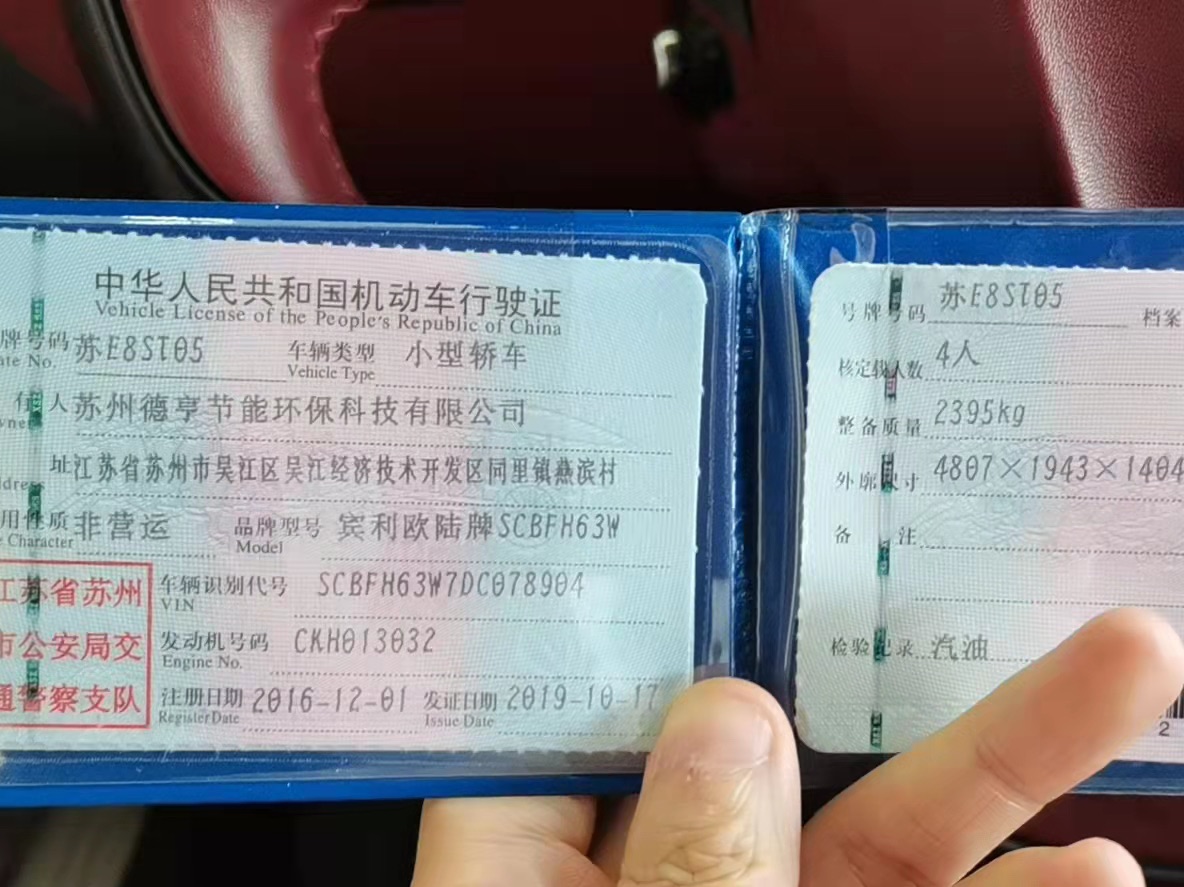 中华人民共和国机动车行驶证
Vehicle License of the People's Republic of China
牌号码 苏E8ST05 车辆类型 小型轿车
ate No. Vehicle Type
有人 苏州德亨节能环保科技有限公司
wner
址 江苏省苏州市吴江区吴江经济技术开发区同里镇燕滨村
ddress
用性质 非营运 品牌型号 宾利欧陆牌SCBFH63W
e Character Model
江苏省苏州
市公安局交
通警察支队
车辆识别代号 SCBFH63W7DC078904
VIN
发动机号码 CKH013032
Engine No.
注册日期 2016-12-01 发证日期 2019-10-17
Register Date Issue Date
号牌号码 苏E8ST05 档案
核定载人数 4人
整备质量 2395kg
外廓尺寸 4807×1943×1404
备注
检验记录 汽油
2